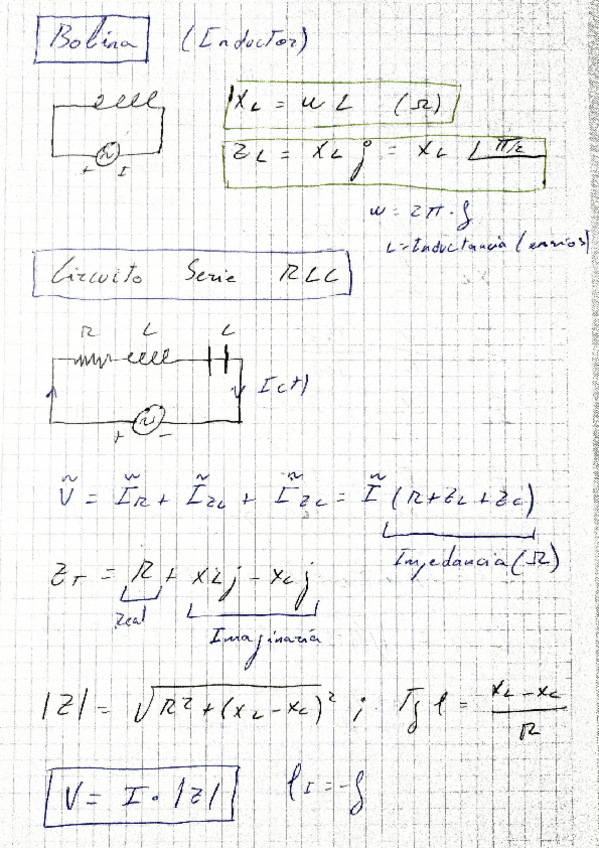 Bobina (Inductor)
XL = ω L (Ω)
+ I
ZL = XL j = XL ∟π/2
ω = 2π·f
L = Inductancia (enrios)
Circuito Serie RLC
R L C
I(t)
+ -
Ṽ = Ĩ R + Ĩ ZL + Ĩ ZC = Ĩ (R + ZL + ZC)
Impedancia (Ω)
ZT = R + XL j - XC j
Real
Imaginaria
|Z| = √(R² + (XL - XC)²) ; Tg φ = (XL - XC) / R
V = I · |Z|